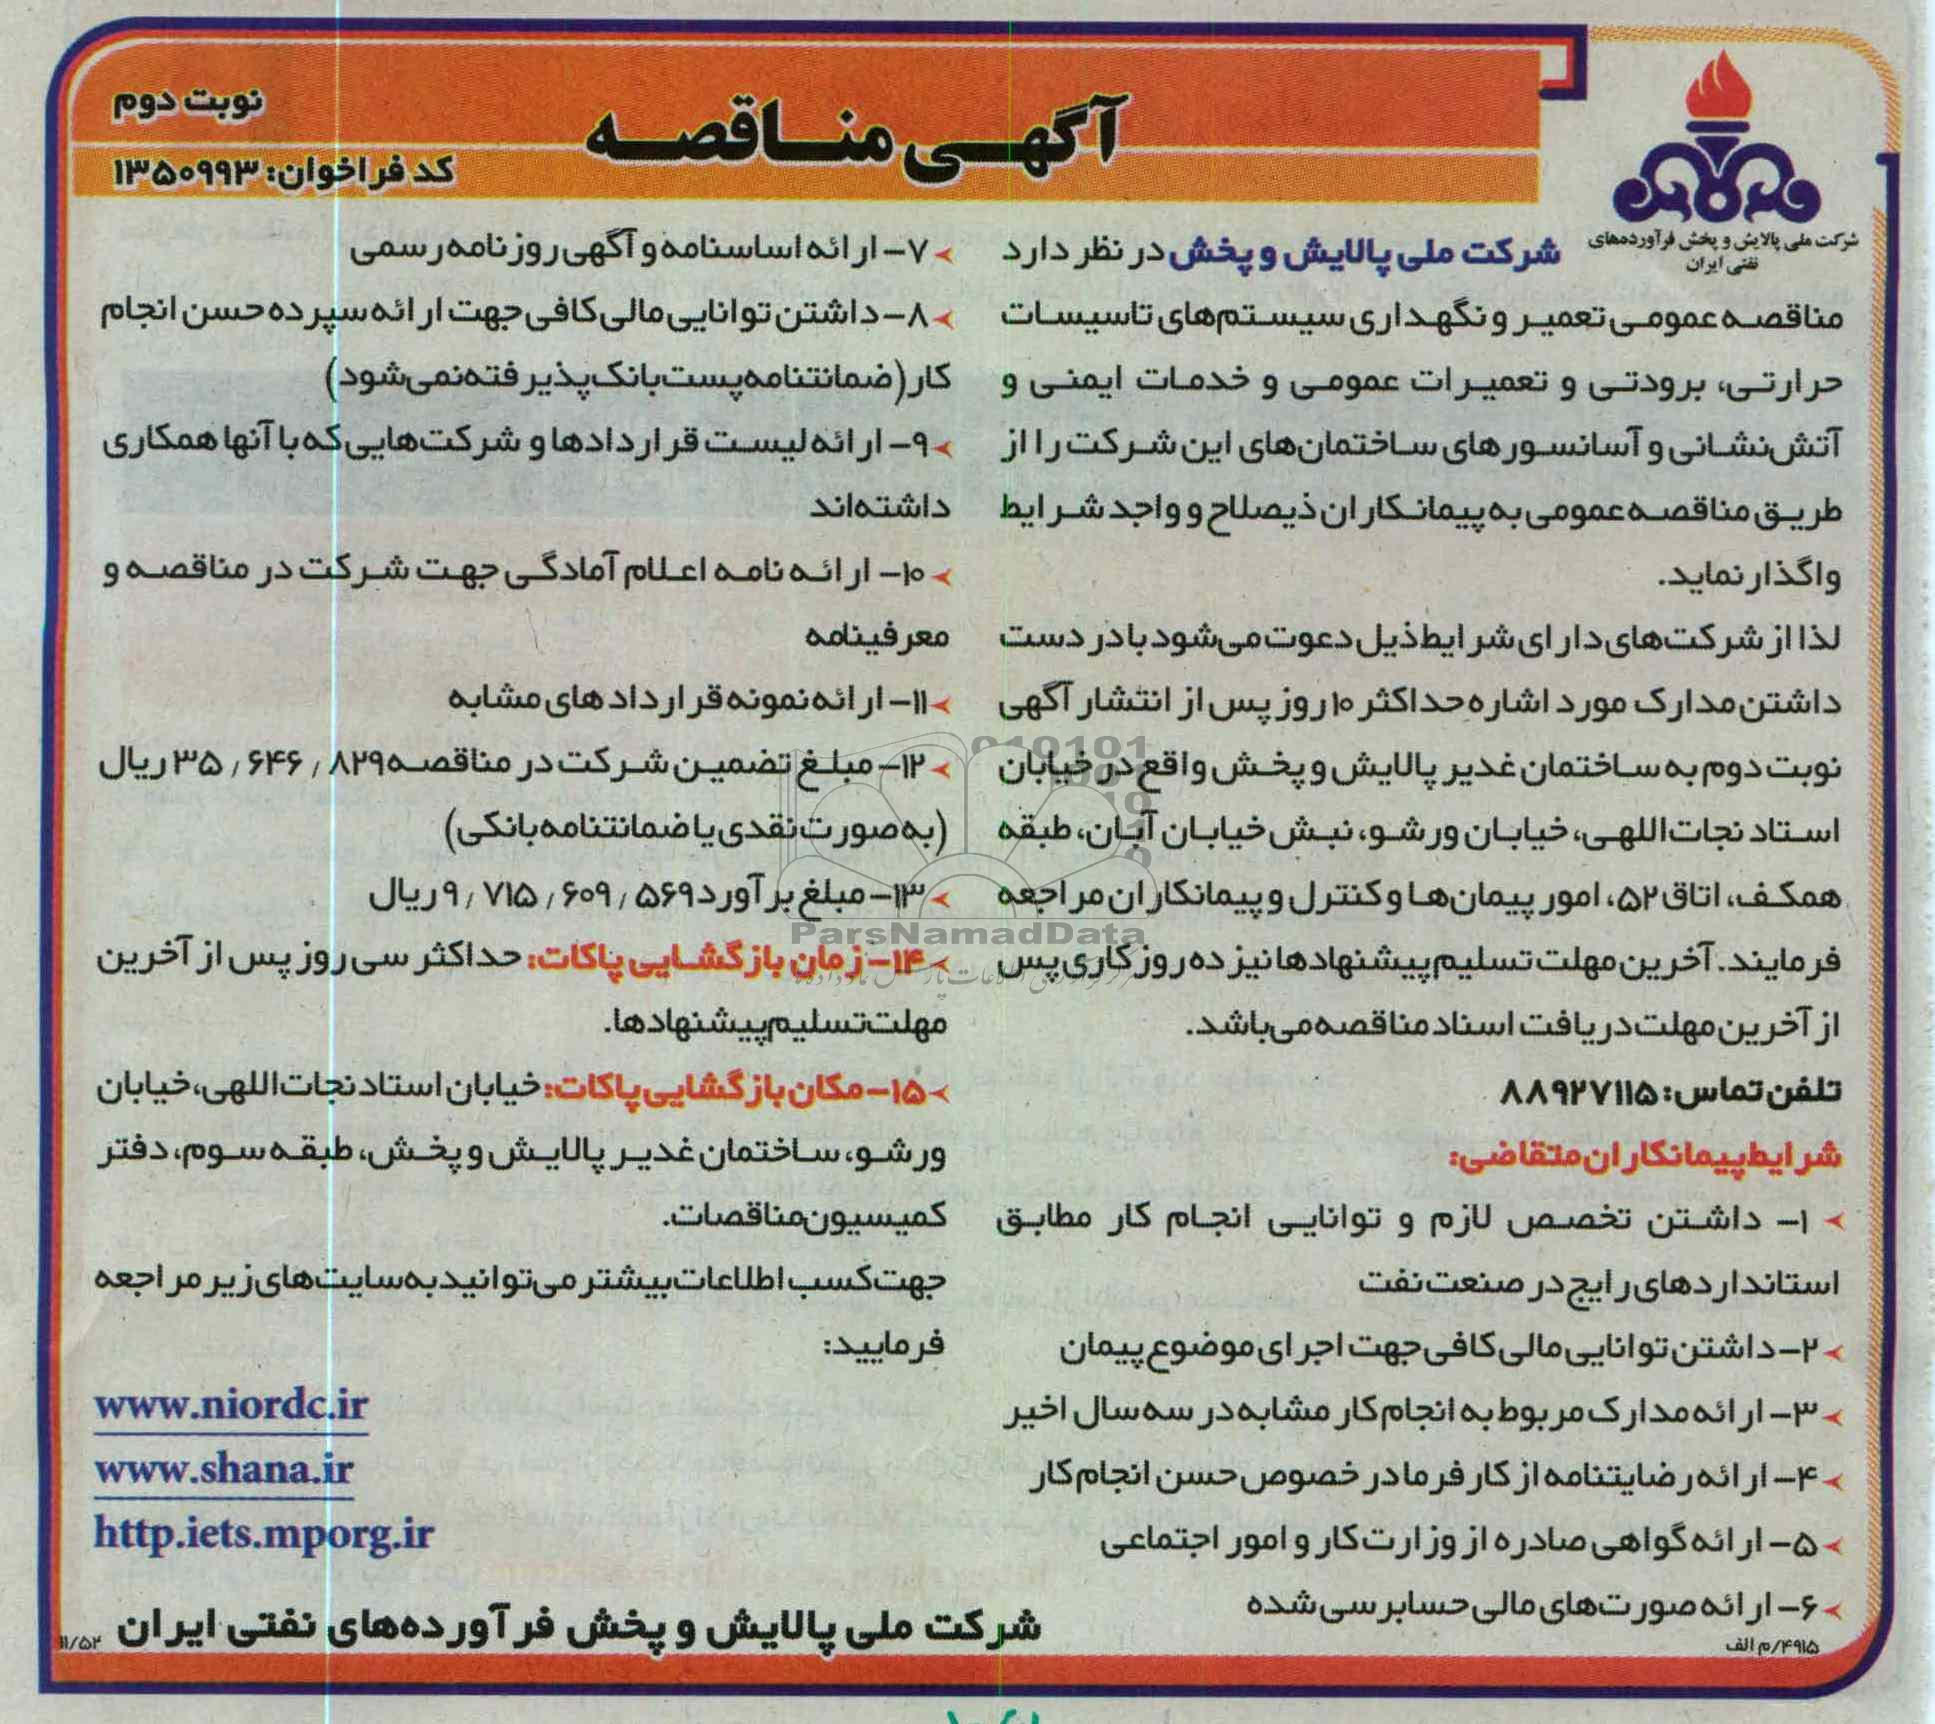 آگهی مناقصه
نوبت دوم
کد فراخوان: ۱۳۵۰۹۹۳
شرکت ملی پالایش و پخش فرآورده‌های
نفتی ایران
شرکت ملی پالایش و پخش در نظر دارد
مناقصه عمومی تعمیر و نگهداری سیستم‌های تاسیسات
حرارتی، برودتی و تعمیرات عمومی و خدمات ایمنی و
آتش‌نشانی و آسانسورهای ساختمان‌های این شرکت را از
طریق مناقصه عمومی به پیمانکاران ذیصلاح و واجد شرایط
واگذار نماید.
لذا از شرکت‌های دارای شرایط ذیل دعوت می‌شود با در دست
داشتن مدارک مورد اشاره حداکثر ۱۰ روز پس از انتشار آگهی
نوبت دوم به ساختمان غدیر پالایش و پخش واقع در خیابان
استاد نجات‌اللهی، خیابان ورشو، نبش خیابان آبان، طبقه
همکف، اتاق ۵۲، امور پیمان‌ها و کنترل و پیمانکاران مراجعه
فرمایند. آخرین مهلت تسلیم پیشنهادها نیز ده روز کاری پس
از آخرین مهلت دریافت اسناد مناقصه می‌باشد.
تلفن تماس: ۸۸۹۲۷۱۱۵
شرایط پیمانکاران متقاضی:
۱- داشتن تخصص لازم و توانایی انجام کار مطابق
استانداردهای رایج در صنعت نفت
۲- داشتن توانایی مالی کافی جهت اجرای موضوع پیمان
۳- ارائه مدارک مربوط به انجام کار مشابه در سه سال اخیر
۴- ارائه رضایتنامه از کارفرما در خصوص حسن انجام کار
۵- ارائه گواهی صادره از وزارت کار و امور اجتماعی
۶- ارائه صورت‌های مالی حسابرسی شده
۴۹۱۵/م الف
۷- ارائه اساسنامه و آگهی روزنامه رسمی
۸- داشتن توانایی مالی کافی جهت ارائه سپرده حسن انجام
کار (ضمانتنامه پست بانک پذیرفته نمی‌شود)
۹- ارائه لیست قراردادها و شرکت‌هایی که با آنها همکاری
داشته‌اند
۱۰- ارائه نامه اعلام آمادگی جهت شرکت در مناقصه و
معرفینامه
۱۱- ارائه نمونه قراردادهای مشابه
۱۲- مبلغ تضمین شرکت در مناقصه ۳۵/۶۴۶/۸۲۹ ریال
(به صورت نقدی یا ضمانتنامه بانکی)
۱۳- مبلغ برآورد ۹/۷۱۵/۶۰۹/۵۶۹ ریال
۱۴- زمان بازگشایی پاکات: حداکثر سی روز پس از آخرین
مهلت تسلیم پیشنهادها.
۱۵- مکان بازگشایی پاکات: خیابان استاد نجات‌اللهی، خیابان
ورشو، ساختمان غدیر پالایش و پخش، طبقه سوم، دفتر
کمیسیون مناقصات.
جهت کسب اطلاعات بیشتر می‌توانید به سایت‌های زیر مراجعه
فرمایید:
www.niordc.ir
www.shana.ir
http.iets.mporg.ir
شرکت ملی پالایش و پخش فرآورده‌های نفتی ایران
۱۱/۵۲
ParsNamadData